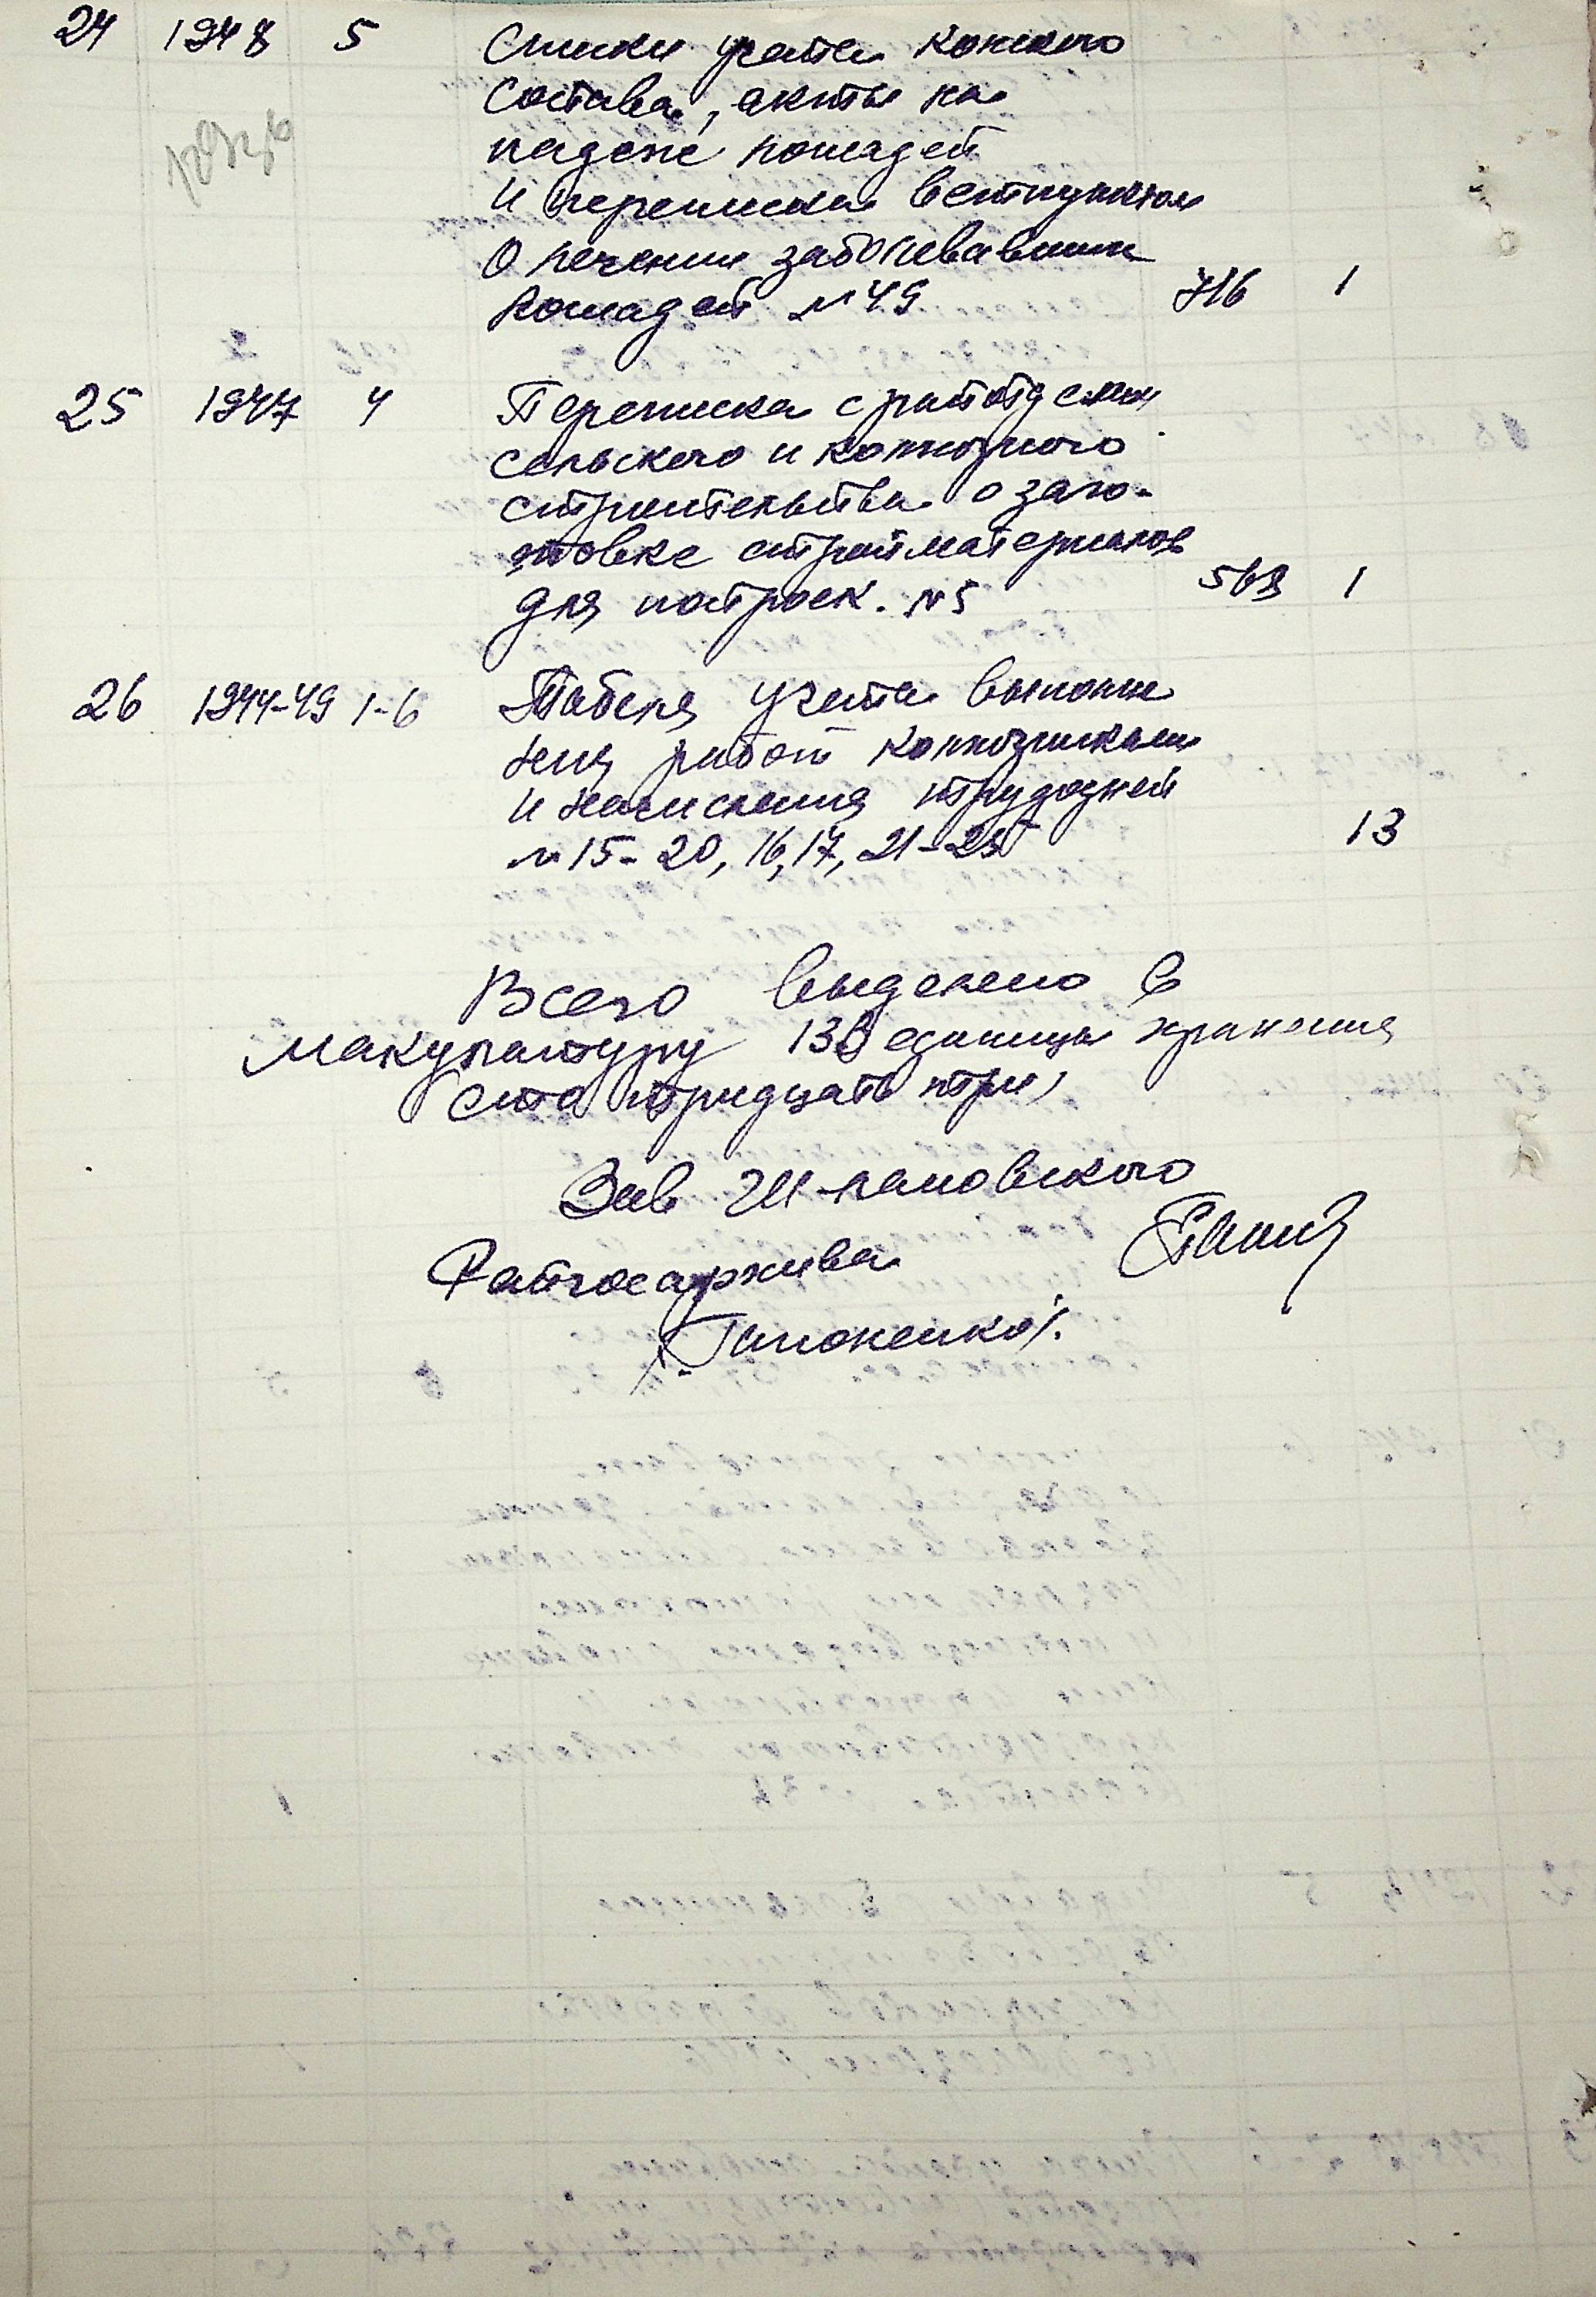 24 1948 5 Списки учета конского
состава, акты на
падеж лошадей
и переписка ветпунктом
о лечении заболевавших
лошадей №49 716 1
25 1947 4 Переписка с райотделом
сельского и колхозного
строительства о заго-
товке стройматериалов
для построек. №5 568 1
26 1944-49 1-6 Табеля учета выполне
ния работ колхозниками
и начисления трудодней
№ 15-20, 16, 17, 21-25 13
Всего выделено в
макулатуру 133 единицы хранения
(сто тридцать три)
Зав
Райгосархива